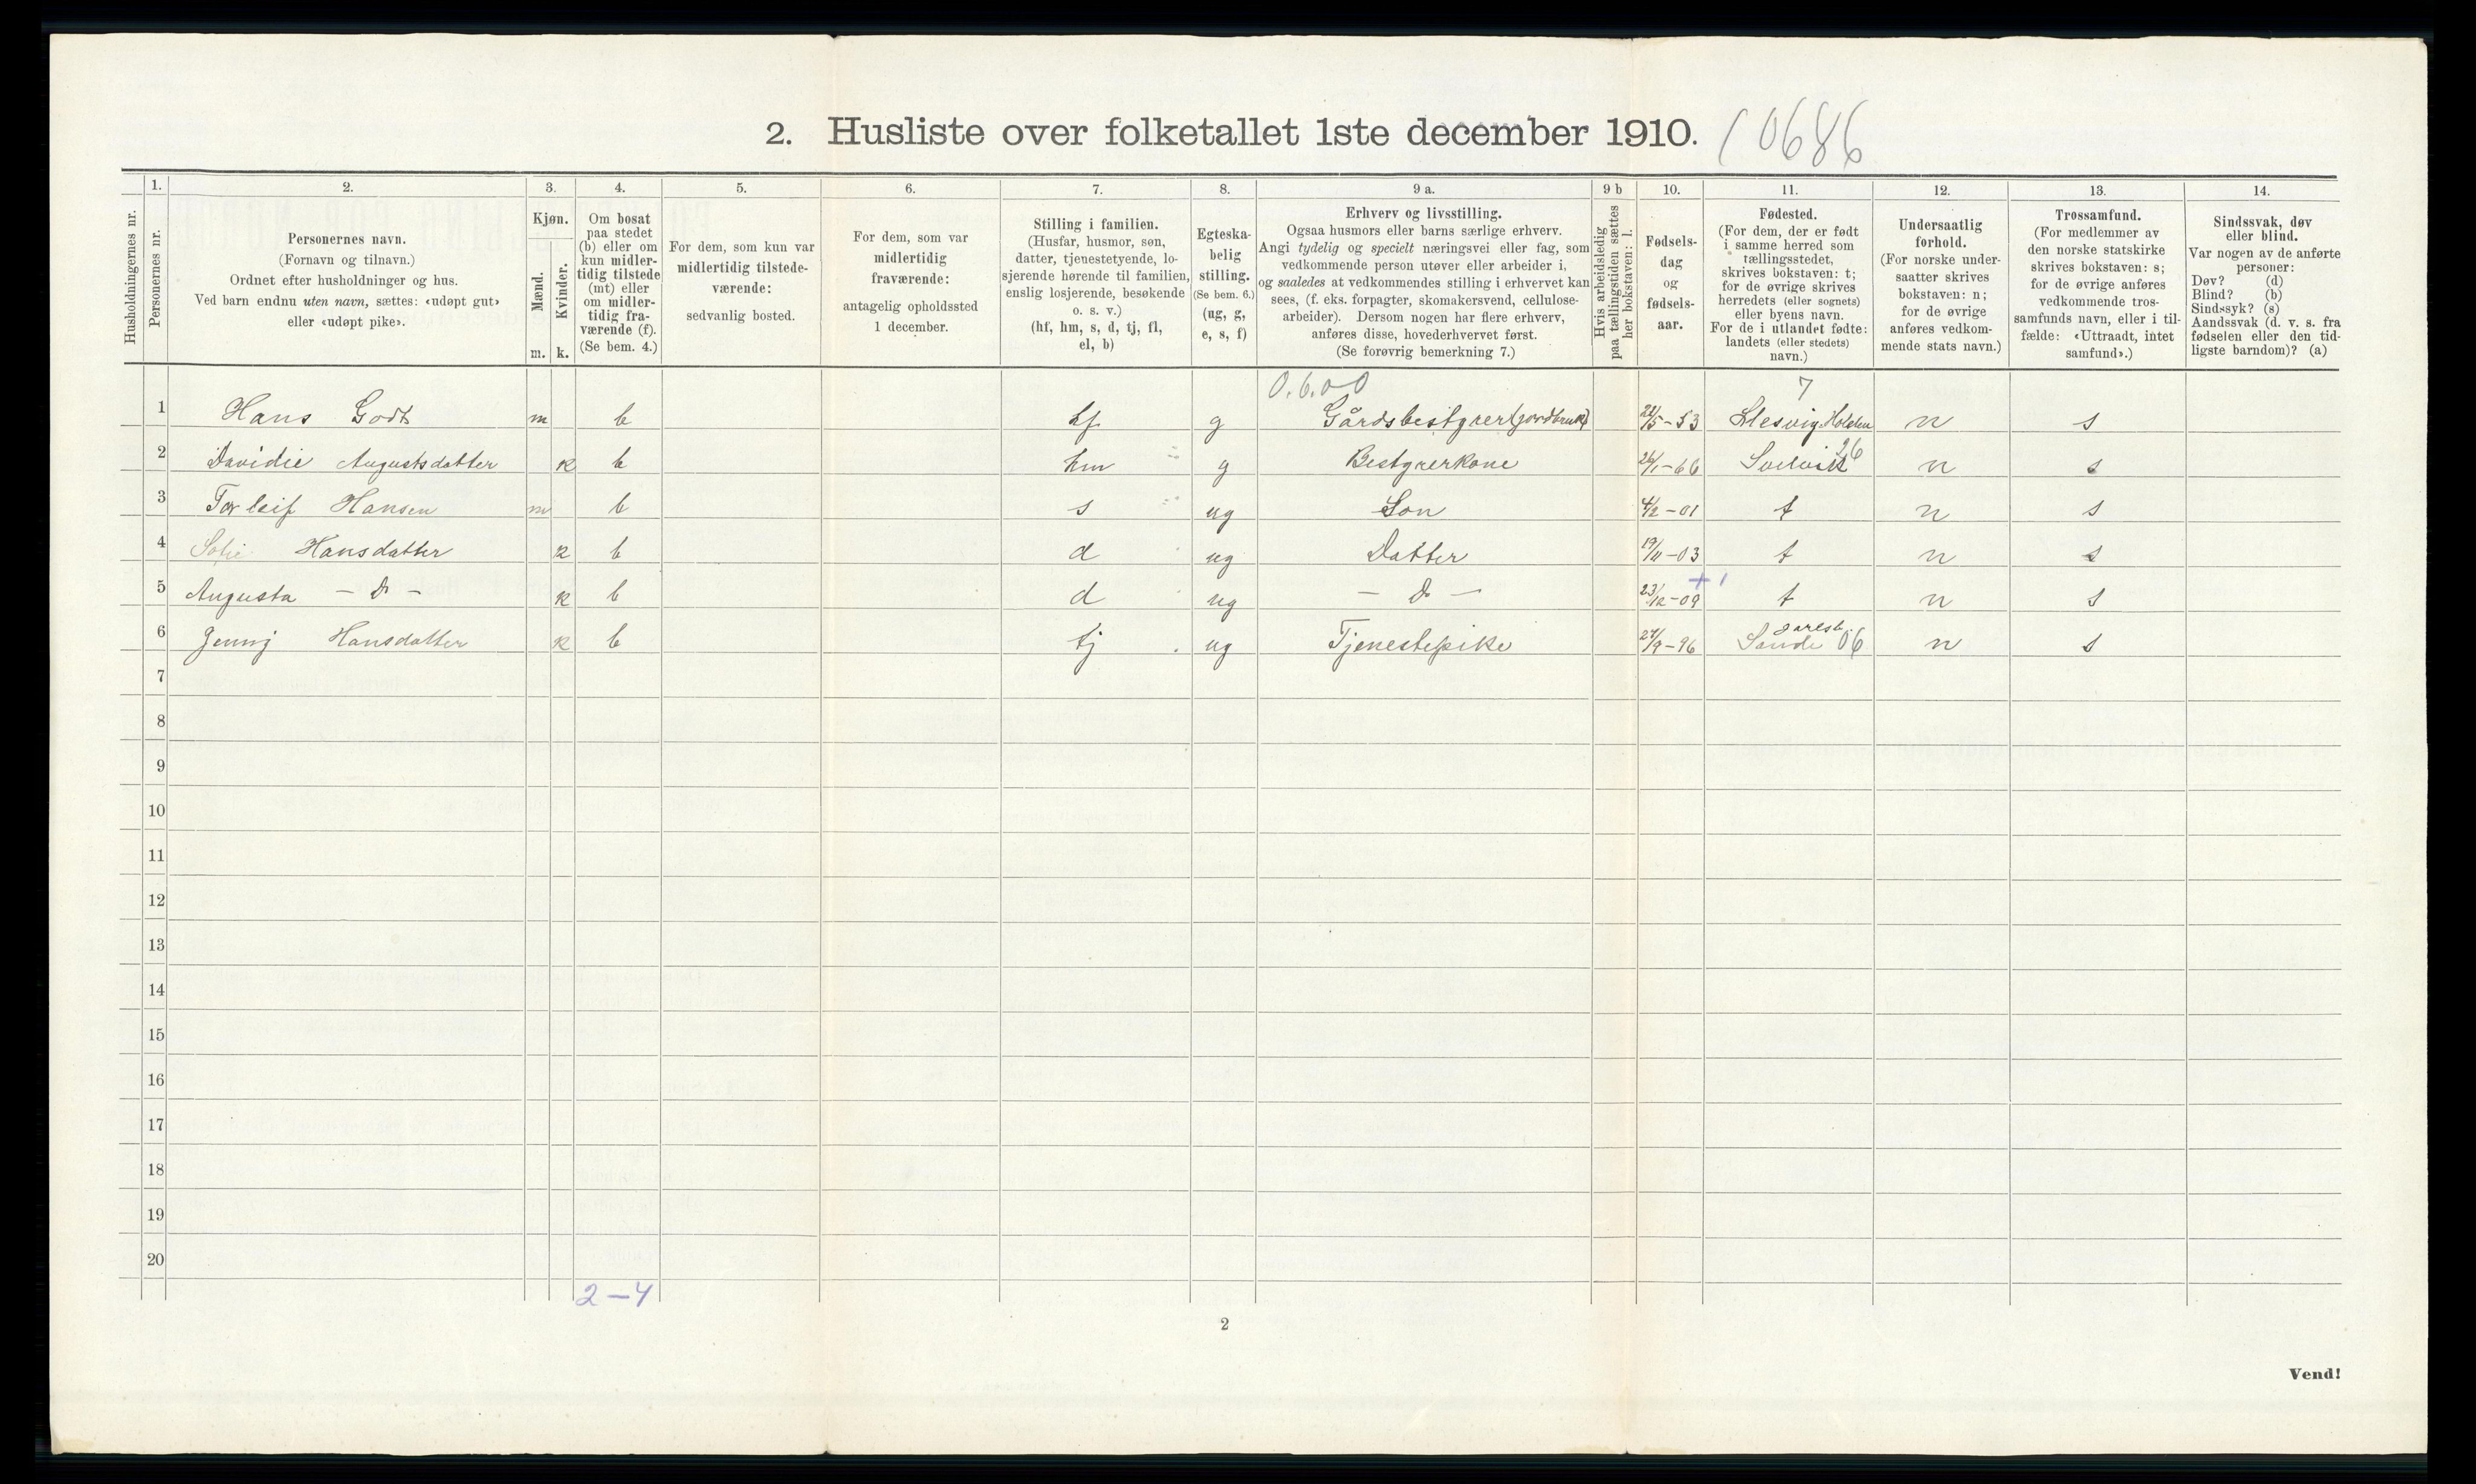 2. Husliste over folketallet 1ste december 1910. 10686
Husholdningernes nr.
1.
Personernes nr.
2.
Personernes navn.
(Fornavn og tilnavn.)
Ordnet efter husholdninger og hus.
Ved barn endnu uten navn, sættes: «udøpt gut»
eller «udøpt pike».
3.
Kjøn.
Mænd.
Kvinder.
m. k.
4.
Om bosat
paa stedet
(b) eller om
kun midler-
tidig tilstede
(mt) eller
om midler-
tidig fra-
værende (f).
(Se bem. 4.)
5.
For dem, som kun var
midlertidig tilstede-
værende:
sedvanlig bosted.
6.
For dem, som var
midlertidig
fraværende:
antagelig opholdssted
1 december.
7.
Stilling i familien.
(Husfar, husmor, søn,
datter, tjenestetyende, lo-
sjerende hørende til familien,
enslig losjerende, besøkende
o. s. v.)
(hf, hm, s, d, tj, fl,
el, b)
8.
Egteska-
belig
stilling.
(Se bem. 6.)
(ug, g,
e, s, f)
9 a.
Erhverv og livsstilling.
Ogsaa husmors eller barns særlige erhverv.
Angi tydelig og specielt næringsvei eller fag, som
vedkommende person utøver eller arbeider i,
og saaledes at vedkommendes stilling i erhvervet kan
sees, (f. eks. forpagter, skomakersvend, cellulose-
arbeider). Dersom nogen har flere erhverv,
anføres disse, hovederhvervet først.
(Se forøvrig bemerkning 7.)
9 b
Hvis arbeidsledig
paa tællingstiden sættes
her bokstaven: l.
10.
Fødsels-
dag
og
fødsels-
aar.
11.
Fødested.
(For dem, der er født
i samme herred som
tællingsstedet,
skrives bokstaven: t;
for de øvrige skrives
herredets (eller sognets)
eller byens navn.
For de i utlandet fødte:
landets (eller stedets)
navn.)
12.
Undersaatlig
forhold.
(For norske under-
saatter skrives
bokstaven: n;
for de øvrige
anføres vedkom-
mende stats navn.)
13.
Trossamfund.
(For medlemmer av
den norske statskirke
skrives bokstaven: s;
for de øvrige anføres
vedkommende tros-
samfunds navn, eller i til-
fælde: «Uttraadt, intet
samfund».)
14.
Sindssvak, døv
eller blind.
Var nogen av de anførte
personer:
Døv? (d)
Blind? (b)
Sindssyk? (s)
Aandssvak (d. v. s. fra
fødselen eller den tid-
ligste barndom)? (a)
0.6.00 7
1 Hans Godt m b hf g Gårdsbestyrer (jordbruk) 22/5-53 Slesvig Holsten n s
2 Davidie Augustsdatter k b hm g Bestyrerkone 26/1-66 Svelvik 26 n s
3 Torleif Hansen m b s ug Son 4/2-01 t n s
4 Sofie Hansdatter k b d ug Datter 19/11-03 t n s
5 Augusta - Do - k b d ug - Do - 23/12-09 t n s
6 Jenny Hansdatter k b tj ug Tjenestepike 27/9-96 Sande Jarlsb. 06 n s
7
8
9
10
11
12
13
14
15
16
17
18
19
20
2-4
2
Vend!